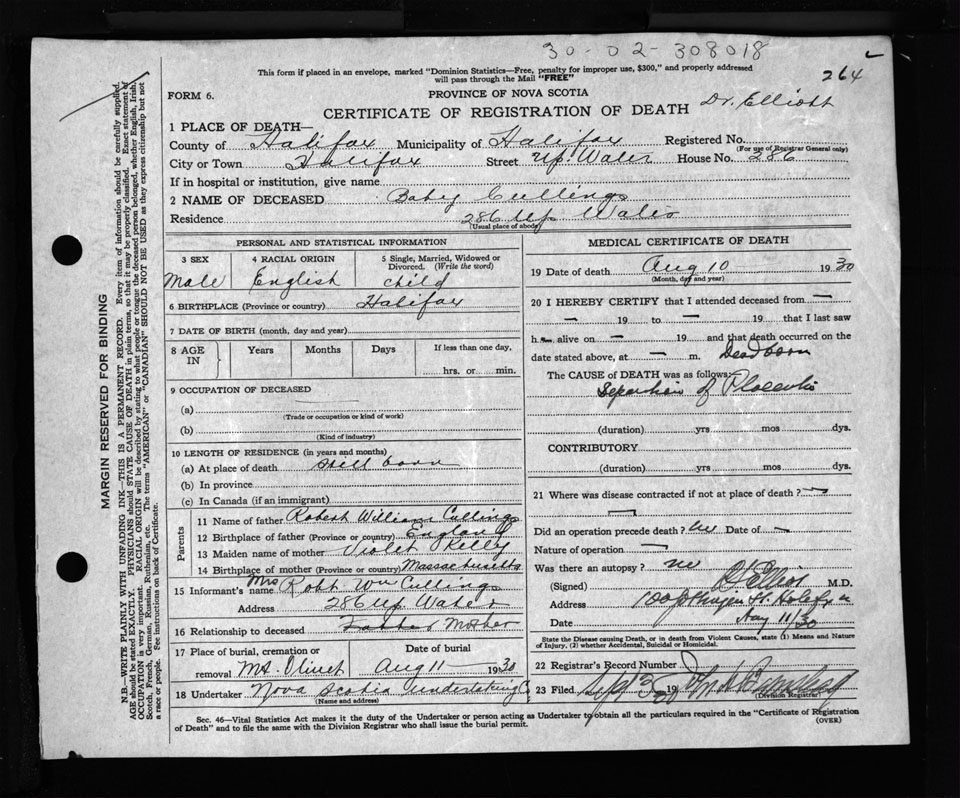 30-02-308018
264
This form if placed in an envelope, marked "Dominion Statistics—Free, penalty for improper use, $300," and properly addressed
will pass through the Mail "FREE"
FORM 6.
PROVINCE OF NOVA SCOTIA
CERTIFICATE OF REGISTRATION OF DEATH Dr. Elliott
1 PLACE OF DEATH—
County of Halifax Municipality of Halifax Registered No.
(For use of Registrar General only)
City or Town Halifax Street Up. Water House No. 286
If in hospital or institution, give name
2 NAME OF DECEASED Baby Cullings
Residence 286 Up Water
(Usual place of abode)
PERSONAL AND STATISTICAL INFORMATION
3 SEX 4 RACIAL ORIGIN 5 Single, Married, Widowed or
Divorced. (Write the word)
Male English child
6 BIRTHPLACE (Province or country) Halifax
7 DATE OF BIRTH (month, day and year)
8 AGE IN Years Months Days If less than one day.
hrs. or min.
9 OCCUPATION OF DECEASED
(a)
(Trade or occupation or kind of work)
(b)
(Kind of industry)
10 LENGTH OF RESIDENCE (in years and months)
(a) At place of death still born
(b) In province
(c) In Canada (if an immigrant)
Parents
11 Name of father Robert William Cullings
12 Birthplace of father (Province or country) England
13 Maiden name of mother Violet Kelly
14 Birthplace of mother (Province or country) Massachusetts
15 Informant's name Mrs Robt. Wm Cullings
Address 286 Up Water
16 Relationship to deceased Father Mother
17 Place of burial, cremation or removal Date of burial
Mt. Olivet Aug 11 1930
18 Undertaker Nova Scotia Undertaking Co
(Name and address)
MEDICAL CERTIFICATE OF DEATH
19 Date of death Aug 10 1930
(Month, day and year)
20 I HEREBY CERTIFY that I attended deceased from —
— 19 to — 19 that I last saw
h alive on — 19 and that death occurred on the
date stated above, at — m. Dead born
The CAUSE OF DEATH was as follows:
Separation of Placenta
(duration) yrs mos dys.
CONTRIBUTORY
(duration) yrs mos dys.
21 Where was disease contracted if not at place of death? —
Did an operation precede death? no Date of —
Nature of operation —
Was there an autopsy? no
(Signed) Elliott M.D.
Address
Date 11/30
State the Disease causing Death, or in death from Violent Causes, state (1) Means and Nature
of Injury, (2) whether Accidental, Suicidal or Homicidal.
22 Registrar's Record Number
23 Filed 19
(Division Registrar)
Sec. 46—Vital Statistics Act makes it the duty of the Undertaker or person acting as Undertaker to obtain all the particulars required in the "Certificate of Registration
of Death" and to file the same with the Division Registrar who shall issue the burial permit. (OVER)
MARGIN RESERVED FOR BINDING
N.B.—WRITE PLAINLY WITH UNFADING INK—THIS IS A PERMANENT RECORD. Every item of information should be carefully supplied.
AGE should be stated EXACTLY. PHYSICIANS should STATE CAUSE OF DEATH in plain terms, so that it may be properly classified. Exact statement of
OCCUPATION is very important. RACIAL ORIGIN will be described by stating to what people or tongue the deceased person belonged, whether English, Irish,
Scotch, French, German, Russian, Ruthenian, etc. The terms "AMERICAN" or "CANADIAN" SHOULD NOT BE USED as they express citizenship but not
a race or people. See instructions on back of Certificate.